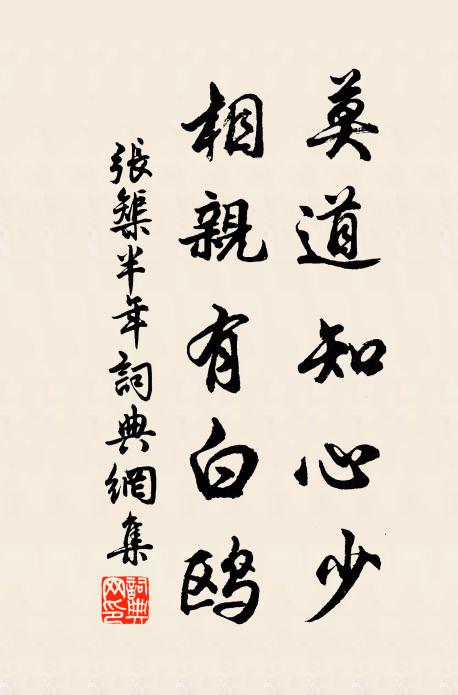 莫道知心少
相親有白鷗
張榘半年詞典網集
詞典网印